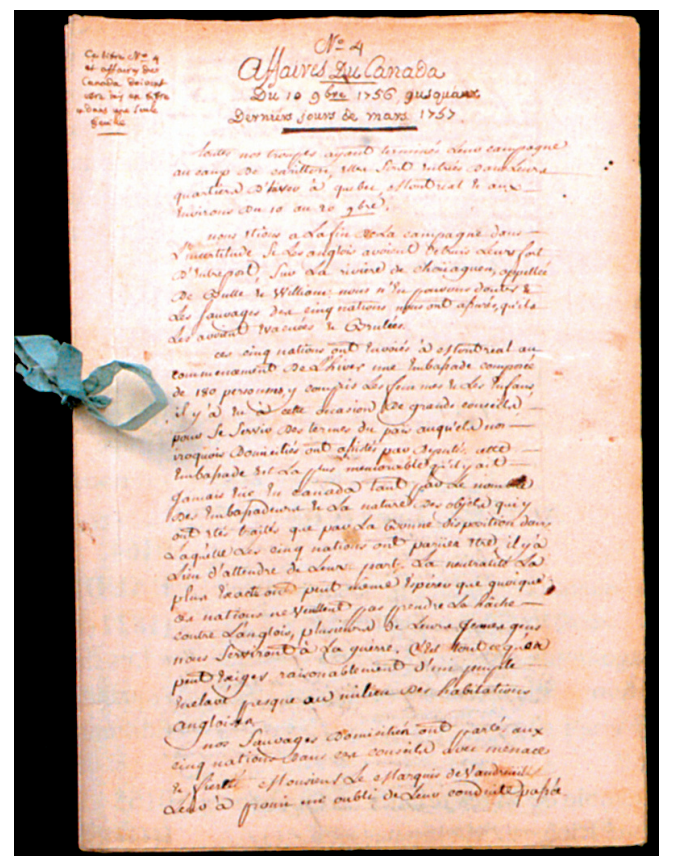 Ce titre N.º 4
et affaires du
Canada doivent
être mis en titre
dans une seule
feuille
N.º 4
Affaires Du Canada
Du 10 9bre 1756 jusquaux
Derniers jours de mars 1757.
toutes nos troupes ayant terminés Leur campagne
au camp De carillon, elles sont entrées dans Leurs
quartiers D'hiver à quebec, Montreal & aux
Environs Du 10 au 20 9bre.
nous étions a La fin De La campagne dans
L'incertitude si Les anglois avoient détruis Leurs fort
D'Entrepost, sur La riviere de choüaguen, appellés
De Bulls & William; nous n'en pouvons douter &
Les sauvages des cinq nations nous ont assuré, qu'ils
Les avoient Evacués & Brulées.
ces cinq nations ont Envoiés à Montreal au
commencement De L'hiver une Embassade composée
de 180 personnes y compris Les femmes & Les Enfans
il y'a Eu à cette occasion De grands conseils
pour se servir Des termes du païs auquels nos
iroquois Domiciliés ont assistés par Deputés, cette
Embassade Est La plus memorable qu'il y ait
Jamais Eue En canada tant par Le nombre
Des Embassadeurs & La nature Des objets qui y
ont étés traités que par La Bonne disposition dans
Laquelle Les cinq nations ont parües Etre, il y'a
Lieu d'attendre de Leur part La neutralité La
plus Exacte on peut même Espérer que quoique
ces nations ne veüllent pas prendre La hâche
contre L'anglois, plusieurs De Leurs Jeunes gens
nous serviront à La guerre. C'est tout ce qu'on
peut Exiger raisonablement d'un peuple
Enclavé presque au milieu Des habitations
angloises.
nos sauvages Domiciliés ont parlés aux
cinq nations dans ces conseils avec menace
& fierté Monsieur Le Marquis de Vaudreuil
Leur à promis un oubli de Leur conduite passée.